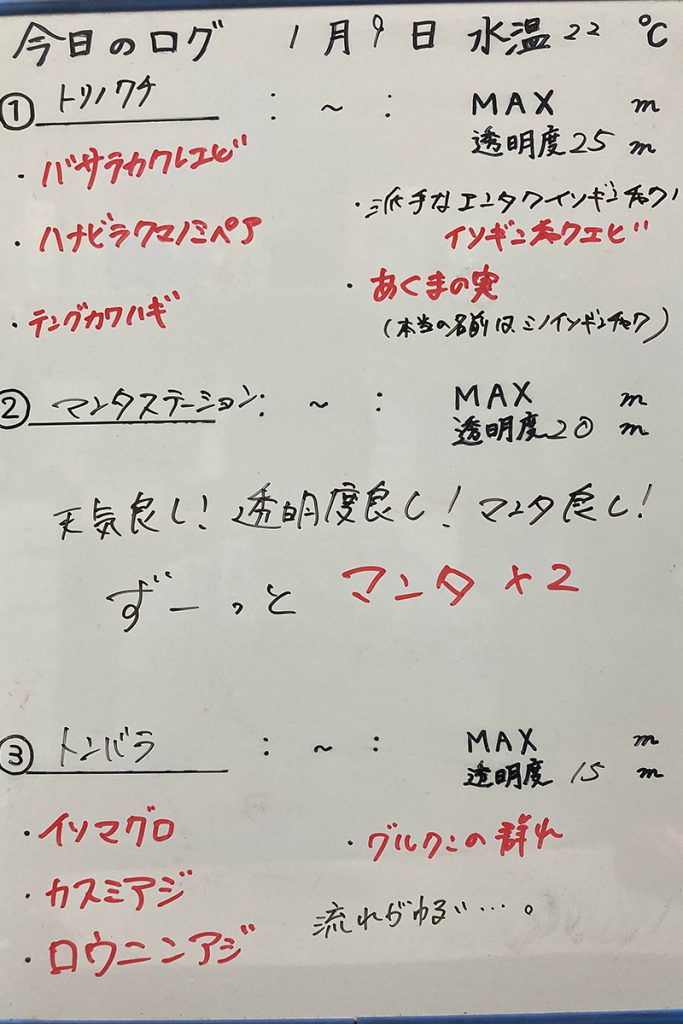 今日のログ 1月9日 水温22℃
① トリノクチ : ~ : MAX m
透明度25m
・バサラカクレエビ
・派手なエンタクイソギンチャク
イソギンチャクエビ
・ハナビラクマノミペア
・あくまの実
(本当の名前は ミノイソギンチャク)
・テングカワハギ
② マンタステーション : ~ : MAX m
透明度20m
天気良し!透明度良し!マンタ良し!
ずーっと マンタ×2
③ トンバラ : ~ : MAX m
透明度 15 m
・イソマグロ
・グルクンの群れ
・カスミアジ
流れがゆるい…。
・ロウニンアジ